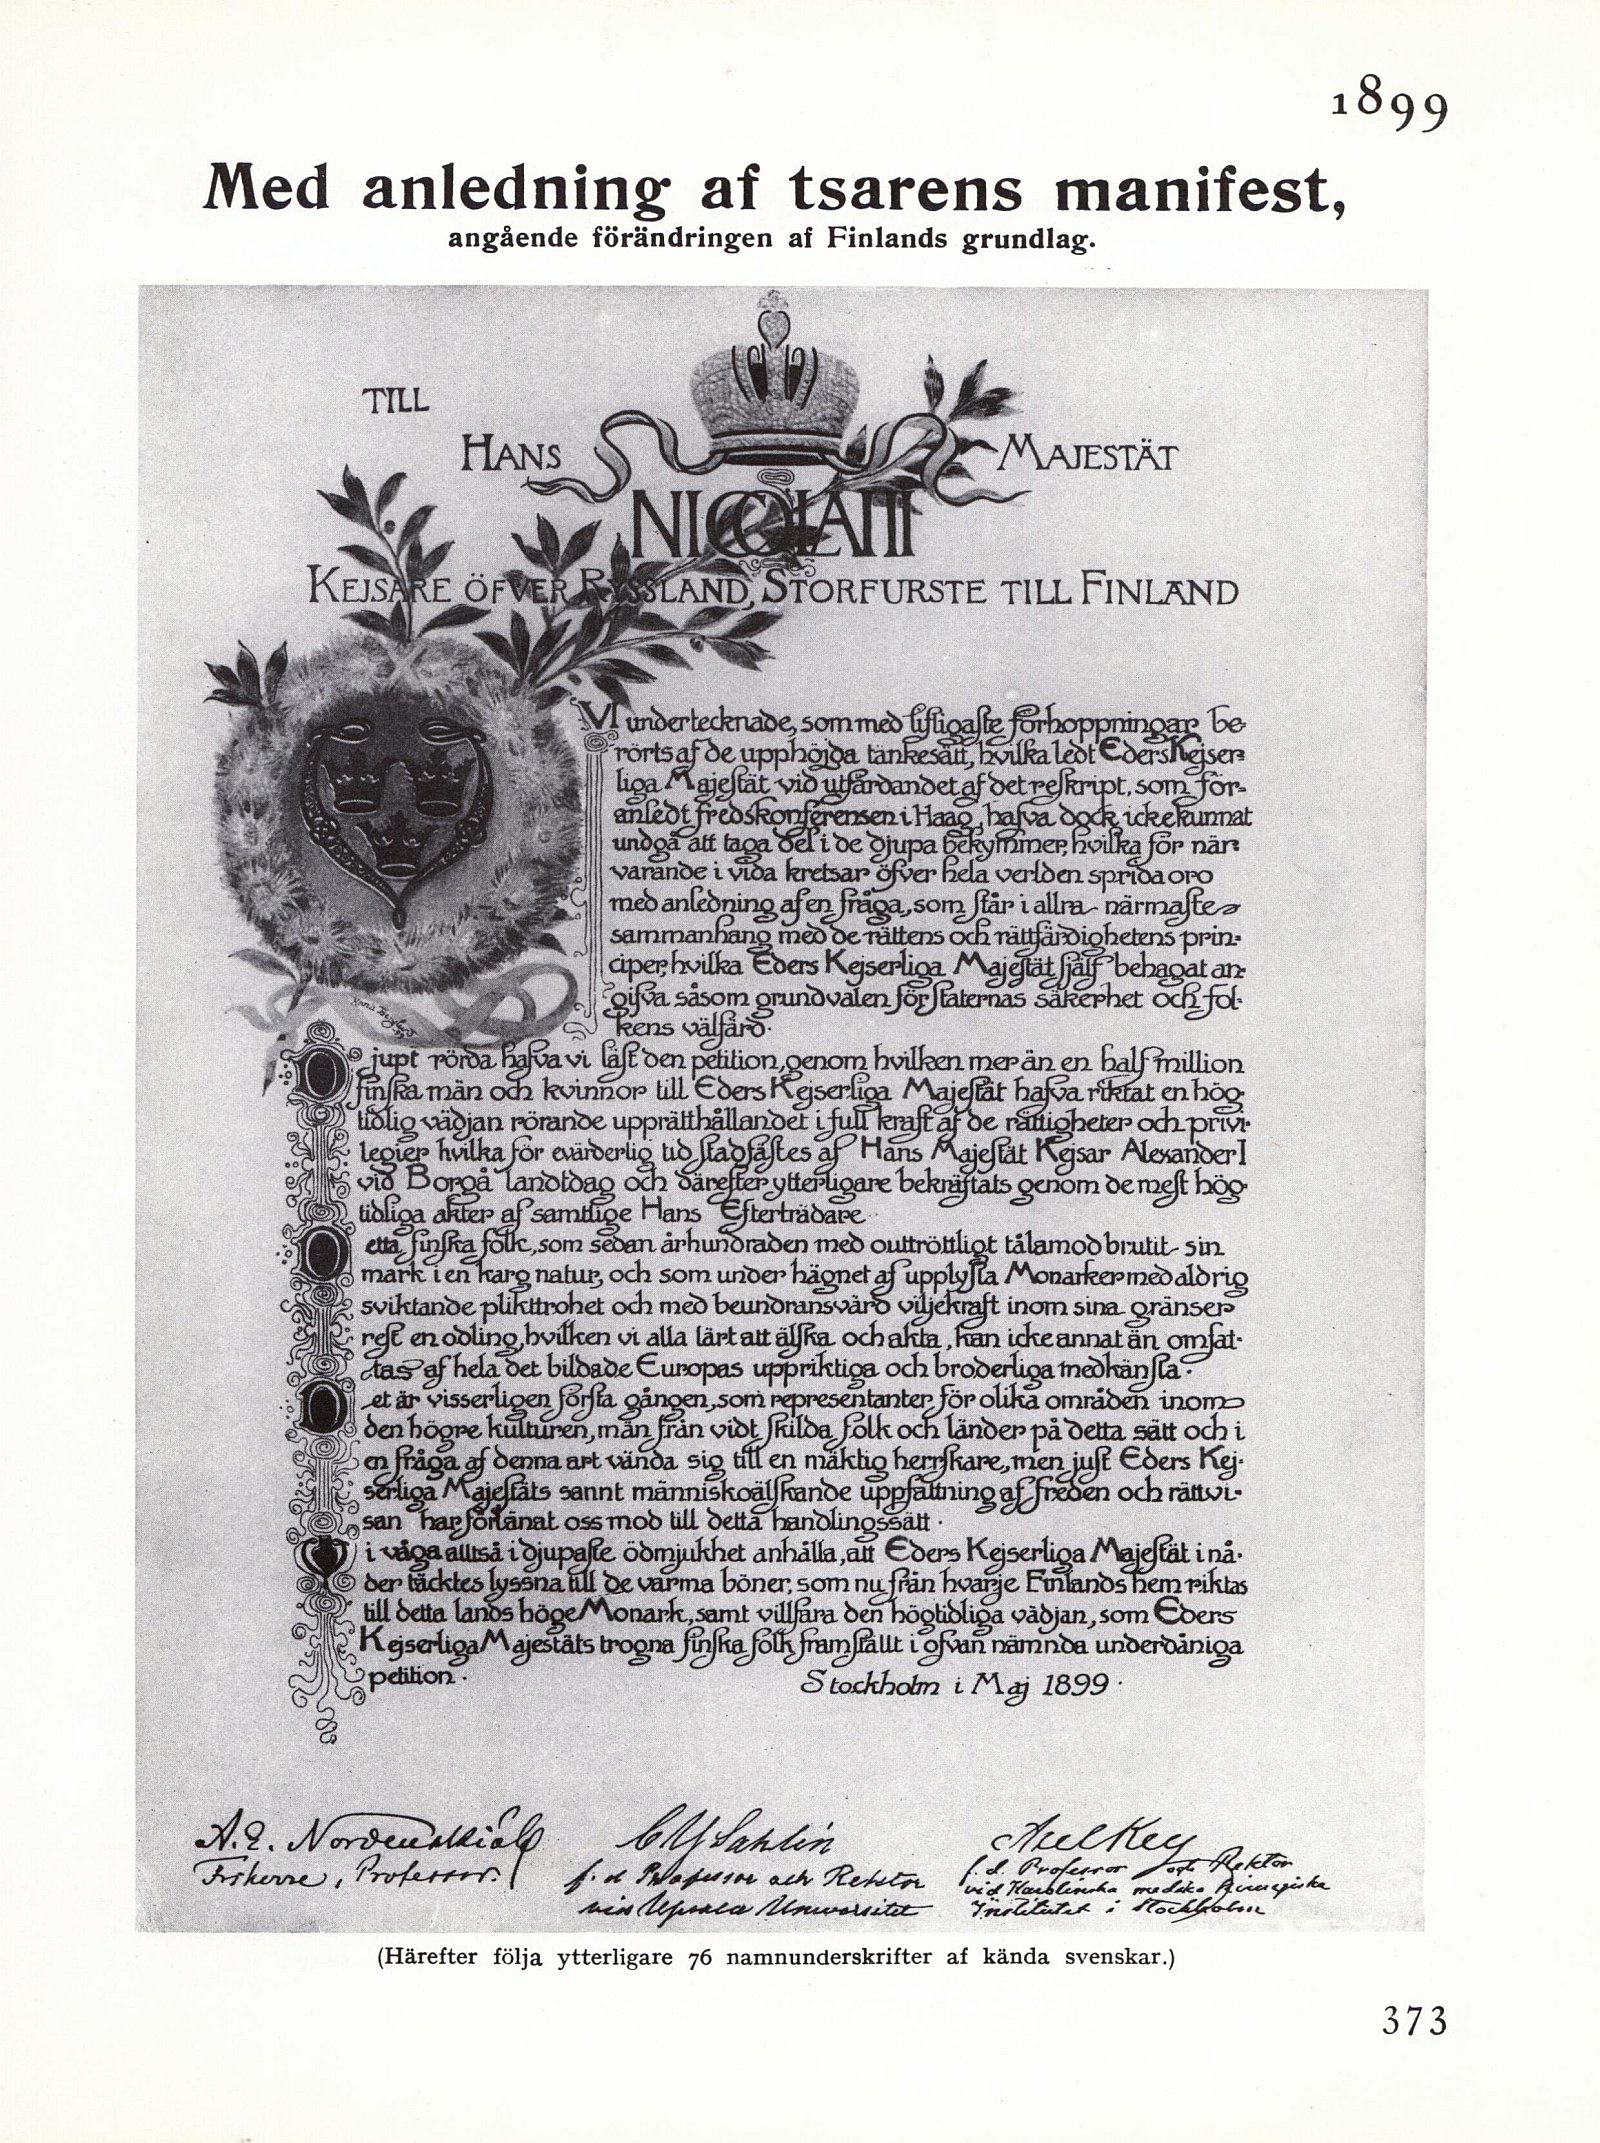 1899
Med anledning af tsarens manifest,
angående förändringen af Finlands grundlag.
TILL
HANS MAJESTÄT
NICOLAI II
KEJSARE ÖFVER RYSSLAND, STORFURSTE TILL FINLAND
VI undertecknade, som med lifligaste förhoppningar be-
rörts af de upphöjda tänkesätt, hvilka ledt Eders Kejser-
liga Majestät vid utfärdandet af det reskript, som för-
anledt fredskonferensen i Haag, hafva dock icke kunnat
undgå att taga del i de djupa bekymmer, hvilka för när-
varande i vida kretsar öfver hela verlden sprida oro
med anledning af en fråga, som står i allra närmaste
sammanhang med de rättens och rättfärdighetens prin-
ciper, hvilka Eders Kejserliga Majestät själf behagat an-
gifva såsom grundvalen för staternas säkerhet och fol-
kens välfärd.
Djupt rörda hafva vi läst den petition, genom hvilken mer än en half million
finska män och kvinnor till Eders Kejserliga Majestät hafva riktat en hög-
tidlig vädjan rörande upprätthållandet i full kraft af de rättigheter och privi-
legier hvilka för evärderlig tid stadfästes af Hans Majestät Kejsar Alexander I
vid Borgå landtdag och därefter ytterligare bekräftats genom de mest hög-
tidliga akter af samtlige Hans Efterträdare
Detta finska folk, som sedan århundraden med outtröttligt tålamod brutit sin
mark i en karg natur, och som under hägnet af upplysta Monarker med aldrig
sviktande plikttrohet och med beundransvärd viljekraft inom sina gränser
rest en odling, hvilken vi alla lärt att älska och akta, kan icke annat än omfat-
tas af hela det bildade Europas uppriktiga och broderliga medkänsla.
Det är visserligen första gången, som representanter för olika områden inom
den högre kulturen, män från vidt skilda folk och länder på detta sätt och i
en fråga af denna art vända sig till en mäktig herrskare, men just Eders Kej-
serliga Majestäts sannt människoälskande uppfattning af freden och rättvi-
san har förlänat oss mod till detta handlingssätt.
Vi våga alltså i djupaste ödmjukhet anhålla, att Eders Kejserliga Majestät i nå-
der täcktes lyssna till de varma böner, som nu från hvarje Finlands hem riktas
till detta lands höge Monark, samt villfara den högtidliga vädjan, som Eders
Kejserliga Majestäts trogna finska folk framställt i ofvan nämnda underdåniga
petition.
Stockholm i Maj 1899.
A. E. Nordenskiöld
Friherre, Professor.
C Y Sahlin
f. d Professor och Rektor
vid Upsala Universitet
Axel Key
f. d. Professor och Rektor
vid Karolinska mediko kirurgiska
Institutet i Stockholm
(Härefter följa ytterligare 76 namnunderskrifter af kända svenskar.)
373